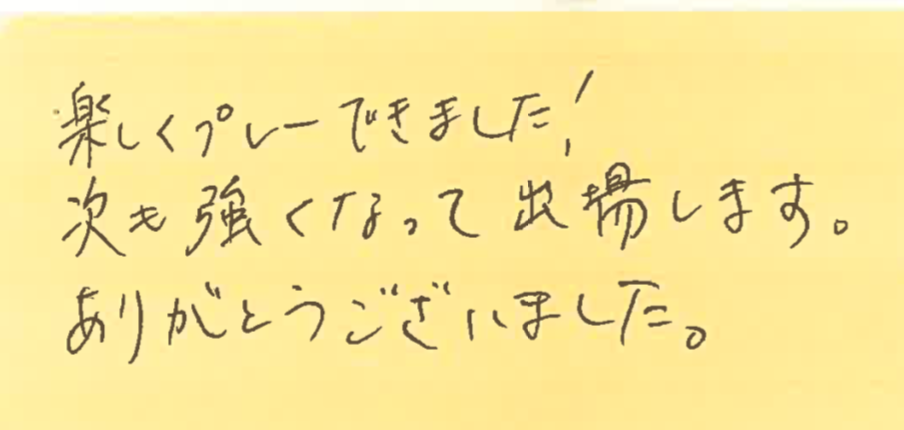 楽しくプレーできました!
次も強くなって出場します。
ありがとうございました。